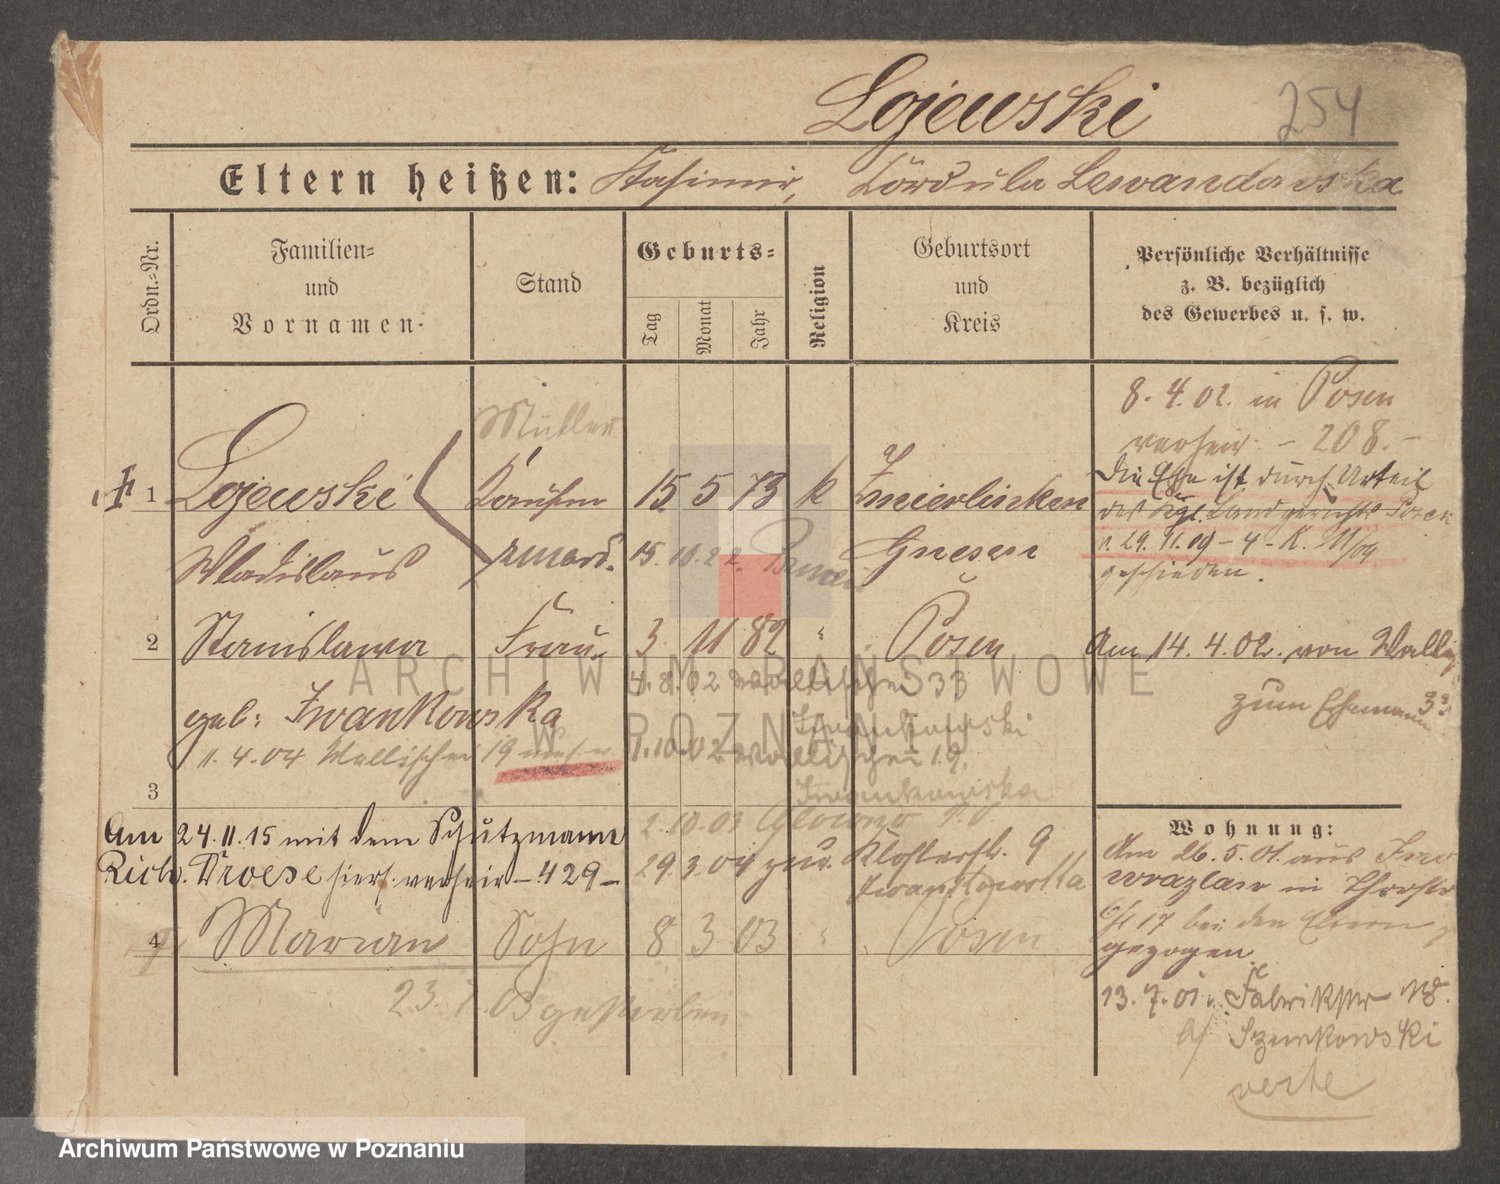 Lojewski 254
Eltern heißen: Kasimir, Kordula Lewandowska
Ordn.-Nr.
Familien-
und
Vornamen
Stand
Geburts-
Tag
Monat
Jahr
Religion
Geburtsort
und
Kreis
Persönliche Verhältnisse
z. B. bezüglich
des Gewerbes u. s. w.
8. 4. 02. in Posen
verheir. - 208. -
Müller
1 Lojewski 15 5 73 k
Die Ehe ist durch Urteil
des Kgl. Landgerichts Posen
geschieden.
Wladislaus 15. 10. 22. Gnesen
2 Stanislawa Frau 3 11 82 " Posen
Am 14. 4. 02. von Wallischei
zum Ehemann 33
geb. Iwankowska
4. 8. 02 Wallischei 33
Iwankowski
11. 4. 04 Wallischei 19
1. 10. 02 Wallischei 19.
Iwankowska
3
2. 10. 03
Am 24. 11. 15 mit dem Schutzmann
Rich. Droese hiers. verheir - 429 -
29. 3. 04 zur. Klosterstr. 9
Iwankowska
Wohnung:
Am 26. 5. 01. aus Ino
wrazlaw in
bei den Eltern
gezogen
4 Marian Sohn 8 3 03 " Posen
23. gestorben
13. 7. 01. Fabrikstr 18.
b/ Szunkowski
verte
ARCHIWUM PAŃSTWOWE
W POZNANIU
Archiwum Państwowe w Poznaniu